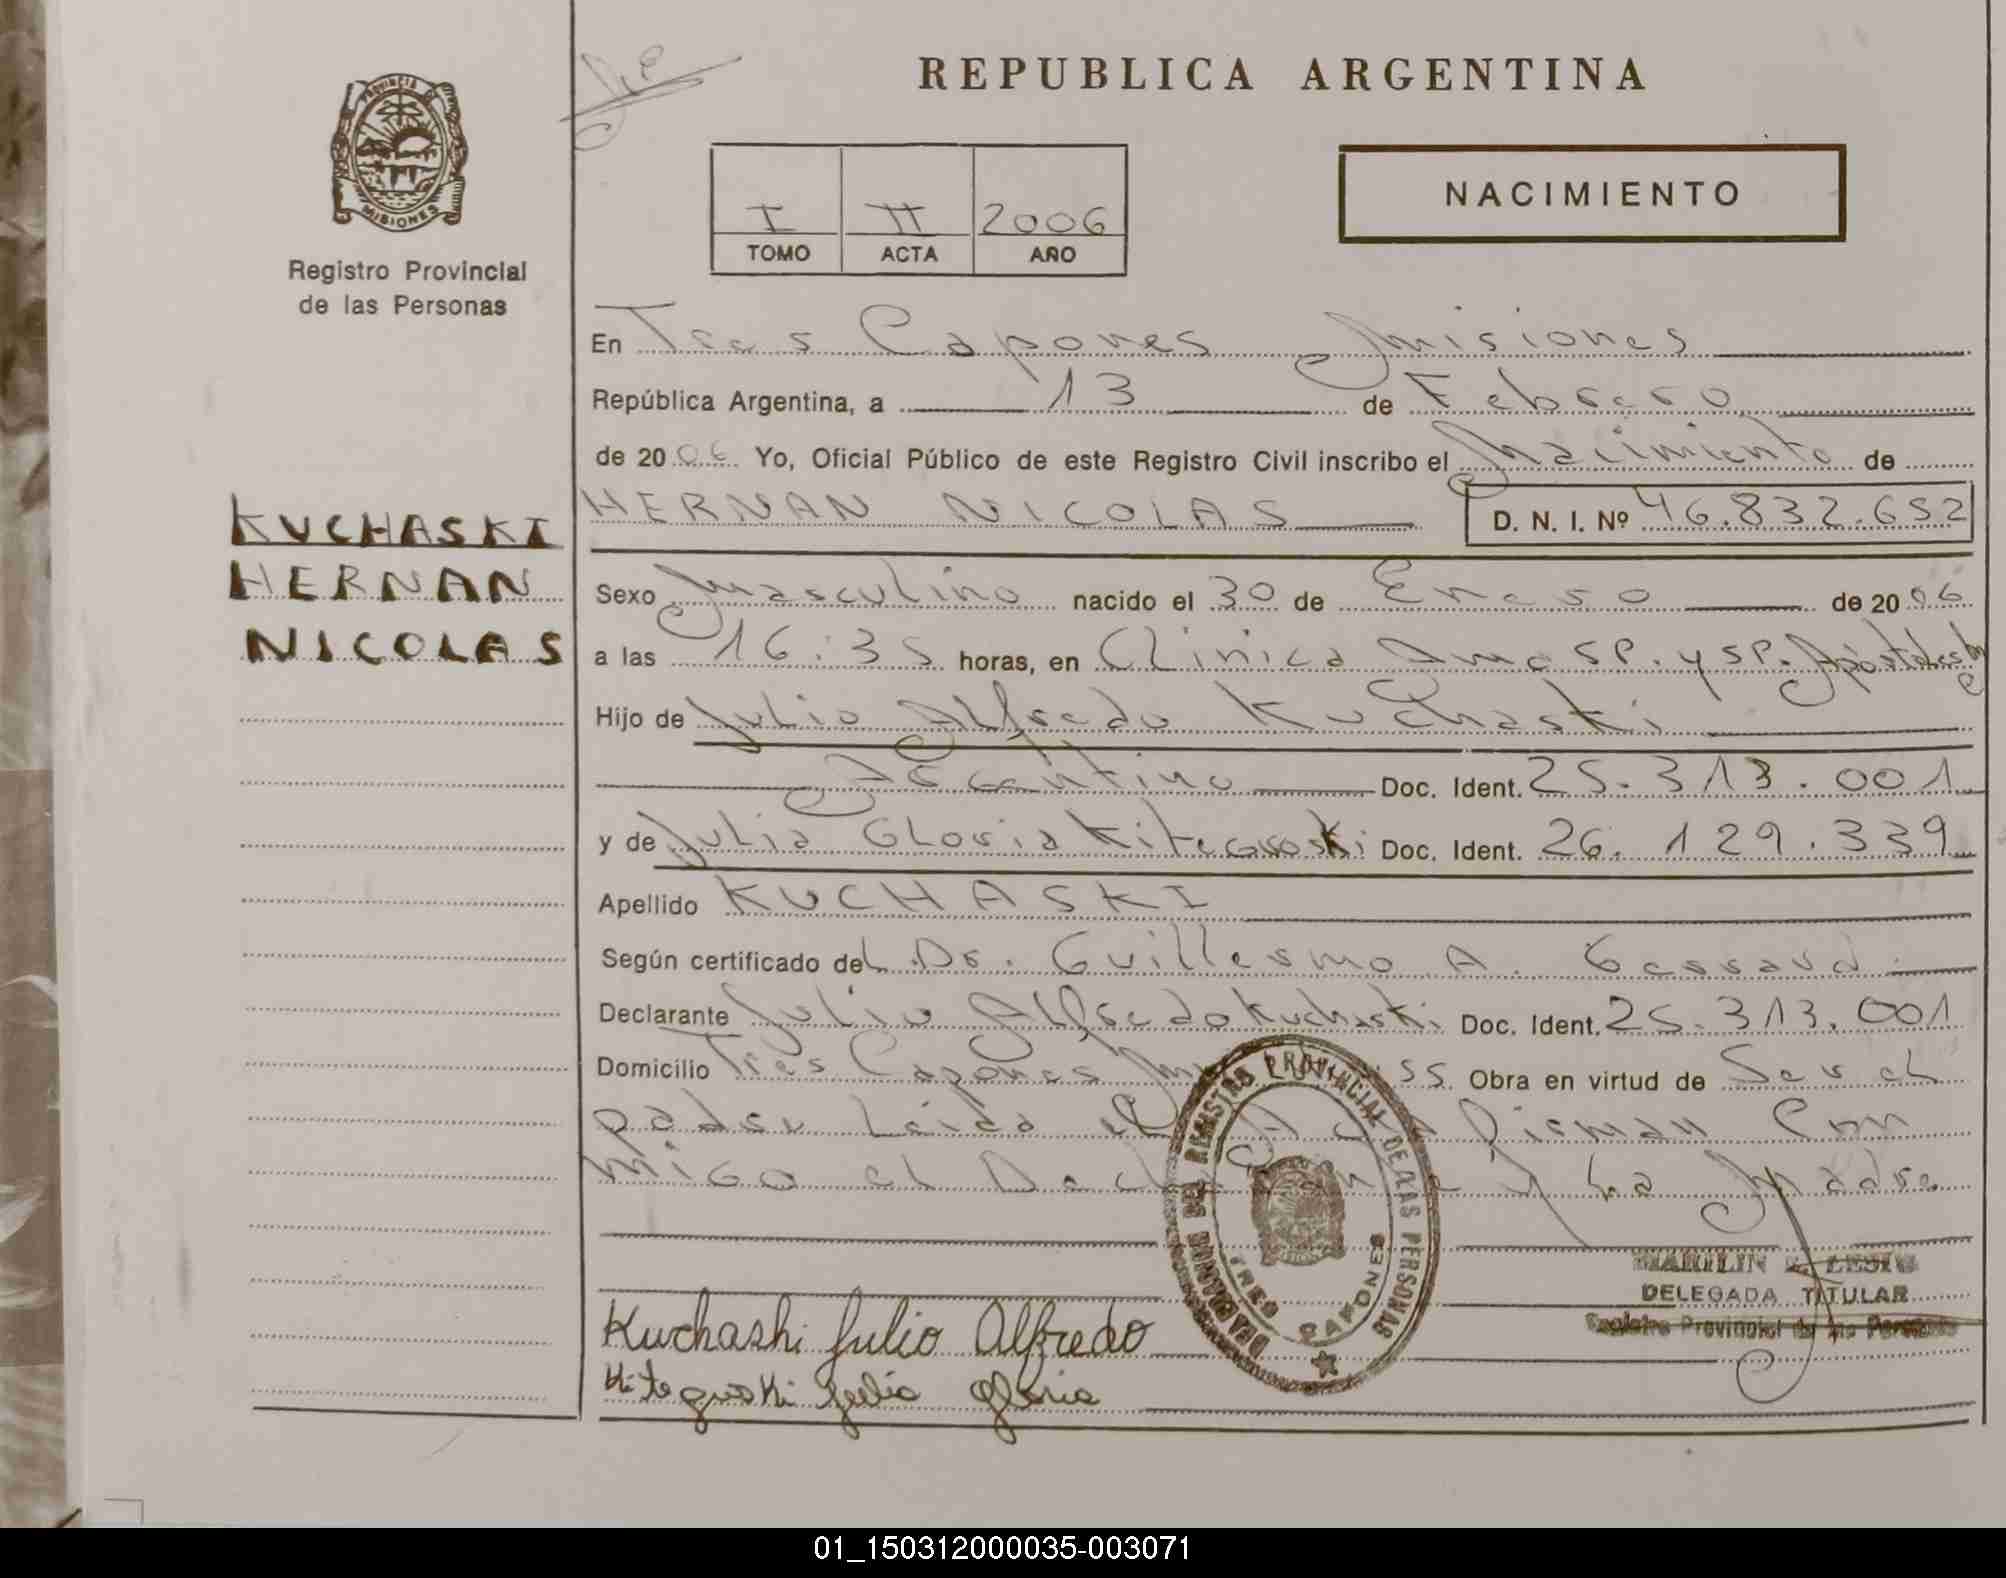 REPUBLICA ARGENTINA
PROVINCIA DE
MISIONES
Registro Provincial
de las Personas
I II 2006
TOMO ACTA AÑO
NACIMIENTO
En Tres Capones Misiones
República Argentina, a 13 de Febrero
de 2006 Yo, Oficial Público de este Registro Civil inscribo el Nacimiento de
KUCHASKI
HERNAN
NICOLAS
HERNAN NICOLAS D. N. I. Nº 46.832.652
Sexo Masculino nacido el 30 de Enero de 2006
a las 16:35 horas, en Clinica SP. y SP. Apóstoles
Hijo de Julio Alfredo Kuchaski
Argentino Doc. Ident. 25.313.001
y de Julia Gloria Kiteguroski Doc. Ident. 26.129.339
Apellido KUCHASKI
Según certificado del Dr. Guillermo A.
Declarante Julio Alfredo Kuchaski Doc. Ident. 25.313.001
Domicilio Tres Capones Obra en virtud de Ser el
padre Leida el Firman Con
migo el y La Madre
DELEGACION DEL REGISTRO PROVINCIAL DE LAS PERSONAS
TRES CAPONES
MARILIN
DELEGADA TITULAR
Registro Provincial de las Personas
Kuchashi Julio Alfredo
Julia Gloria
01_150312000035-003071